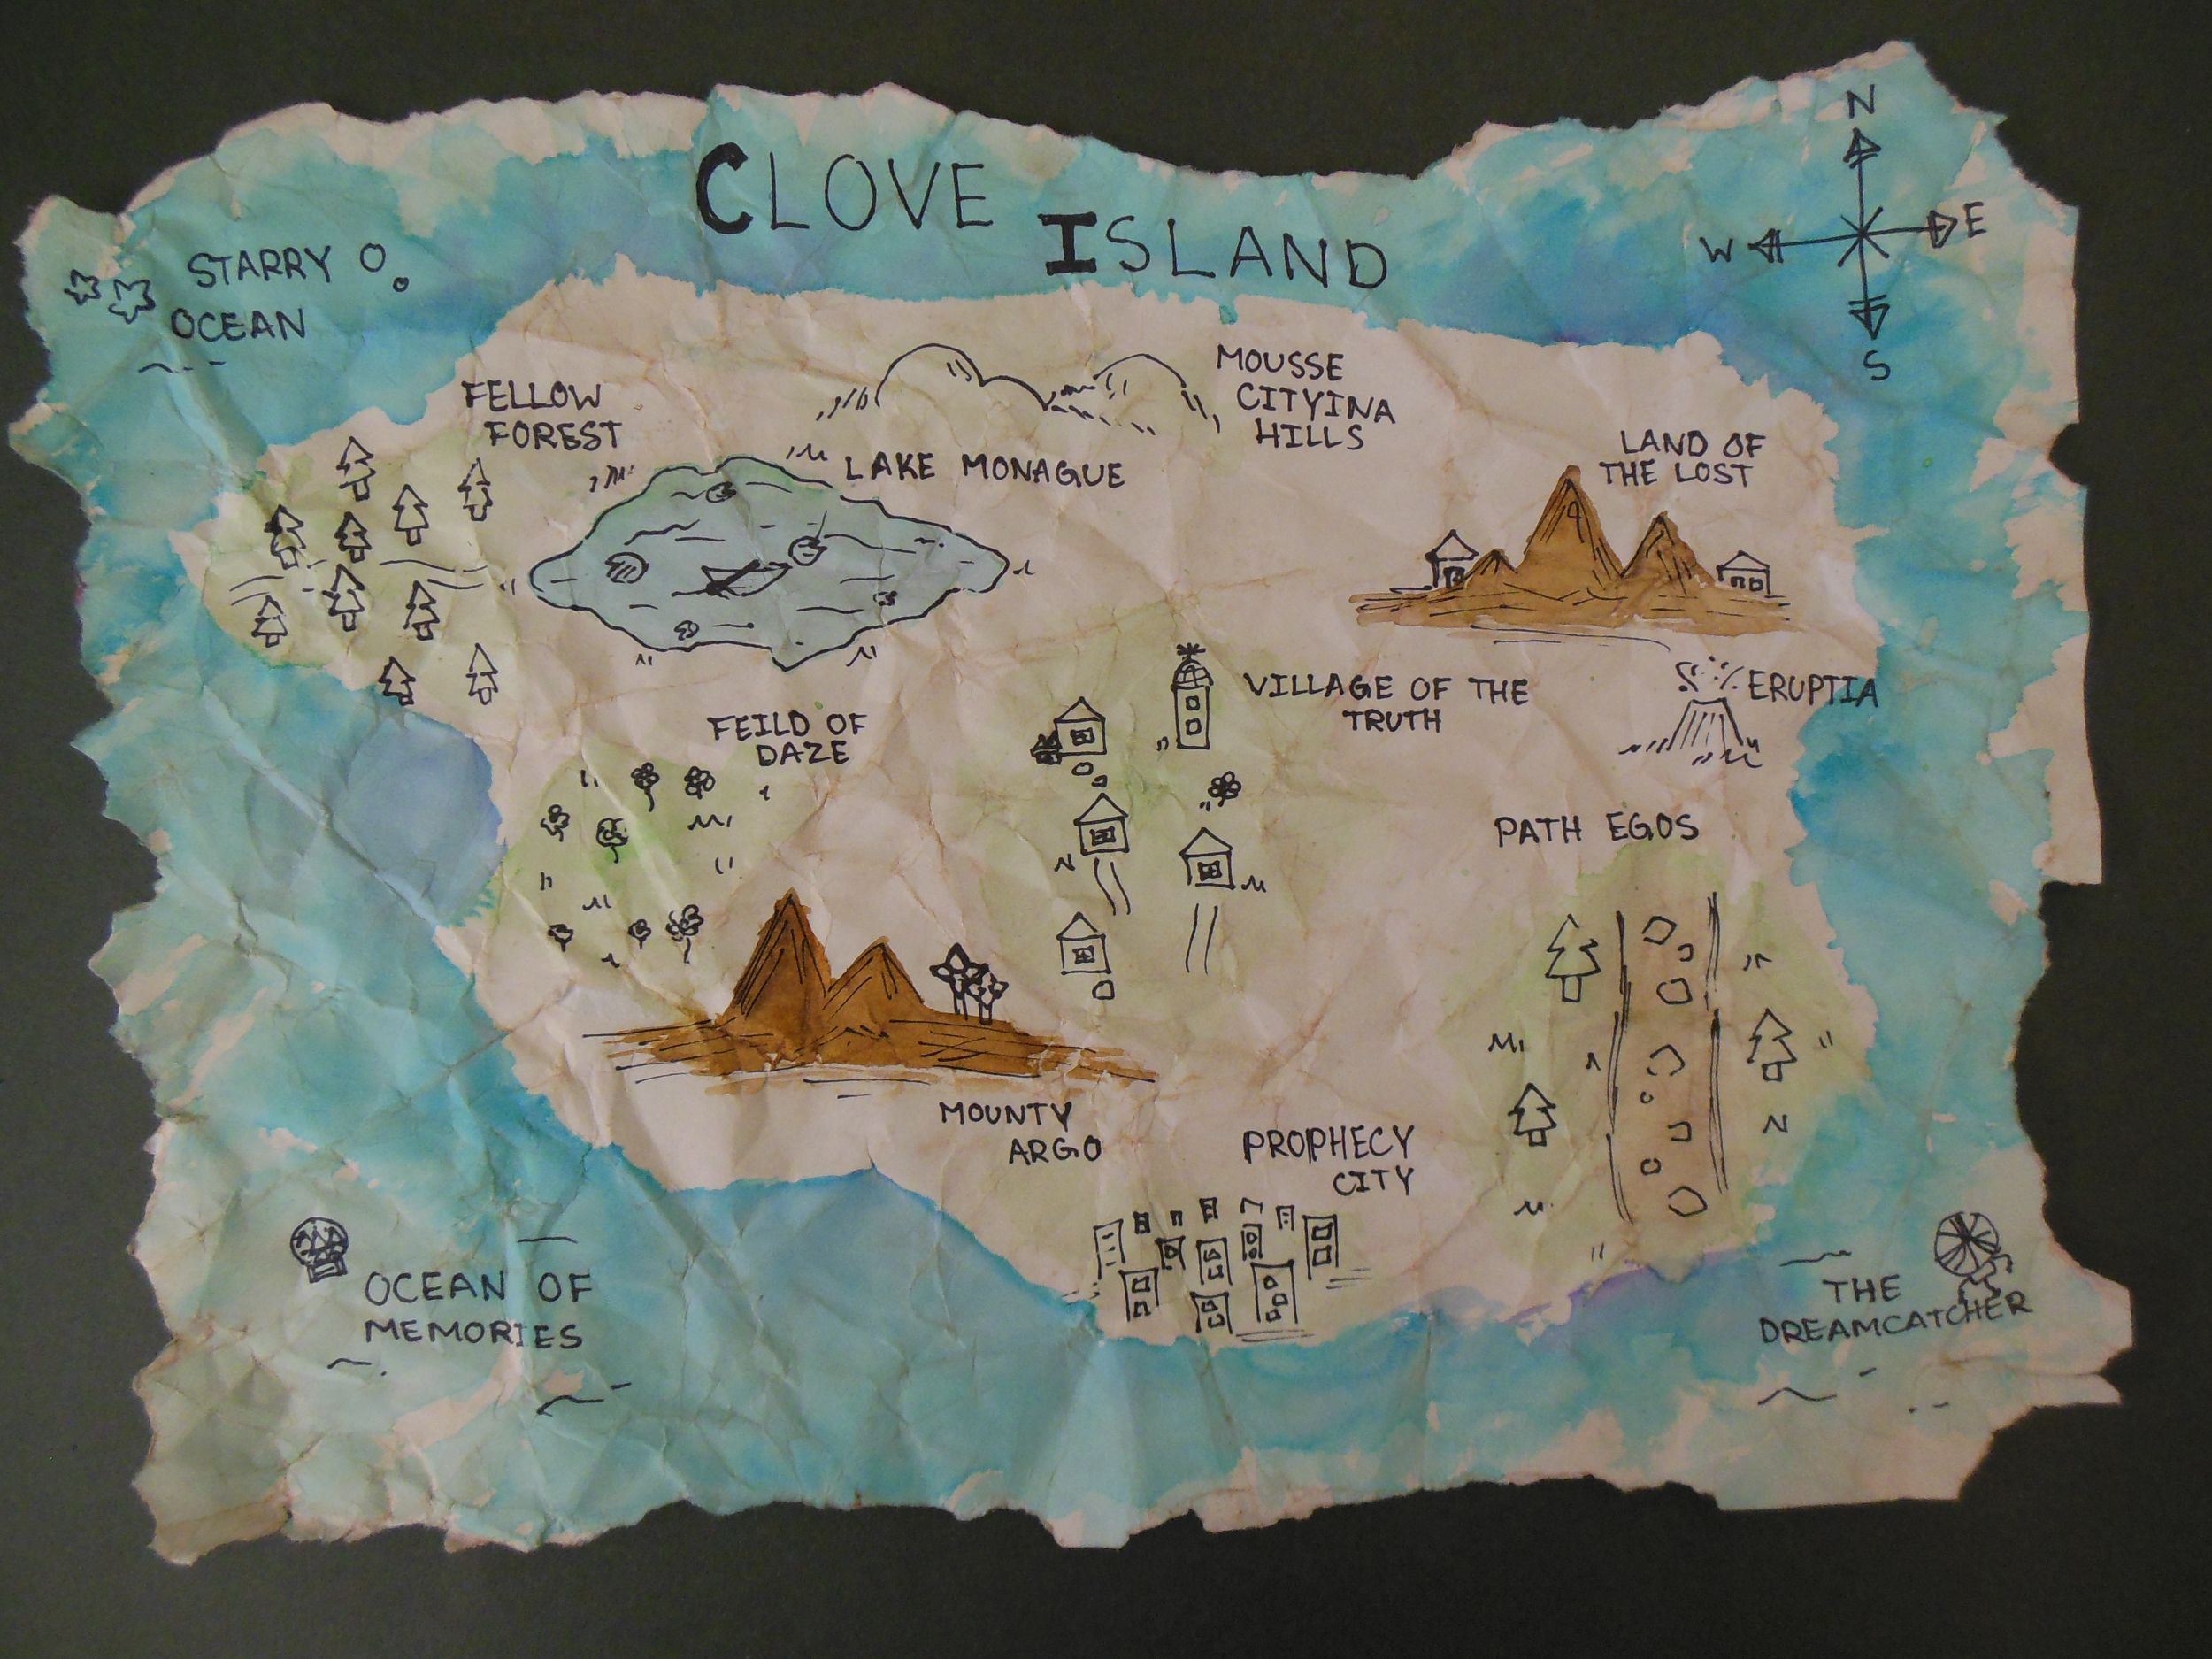 CLOVE ISLAND
N
W
E
S
STARRY
OCEAN
FELLOW
FOREST
MOUSSE
CITYINA
HILLS
LAKE MONAGUE
LAND OF
THE LOST
VILLAGE OF THE
TRUTH
ERUPTIA
FEILD OF
DAZE
PATH EGOS
MOUNTY
ARGO
PROPHECY
CITY
OCEAN OF
MEMORIES
THE
DREAMCATCHER